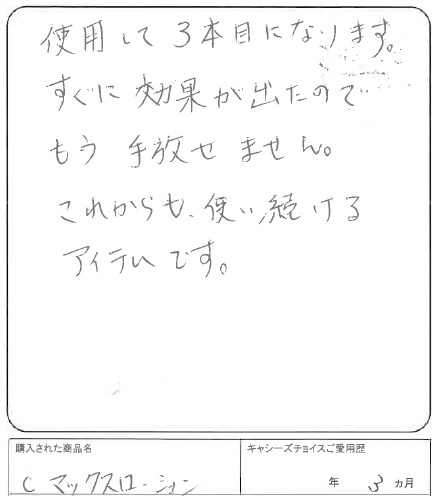 使用して3本目になります。
すぐに効果が出たので
もう手放せません。
これからも、使い続ける
アイテムです。
購入された商品名
キャシーズチョイスご愛用歴
C マックスローション
年 3 カ月